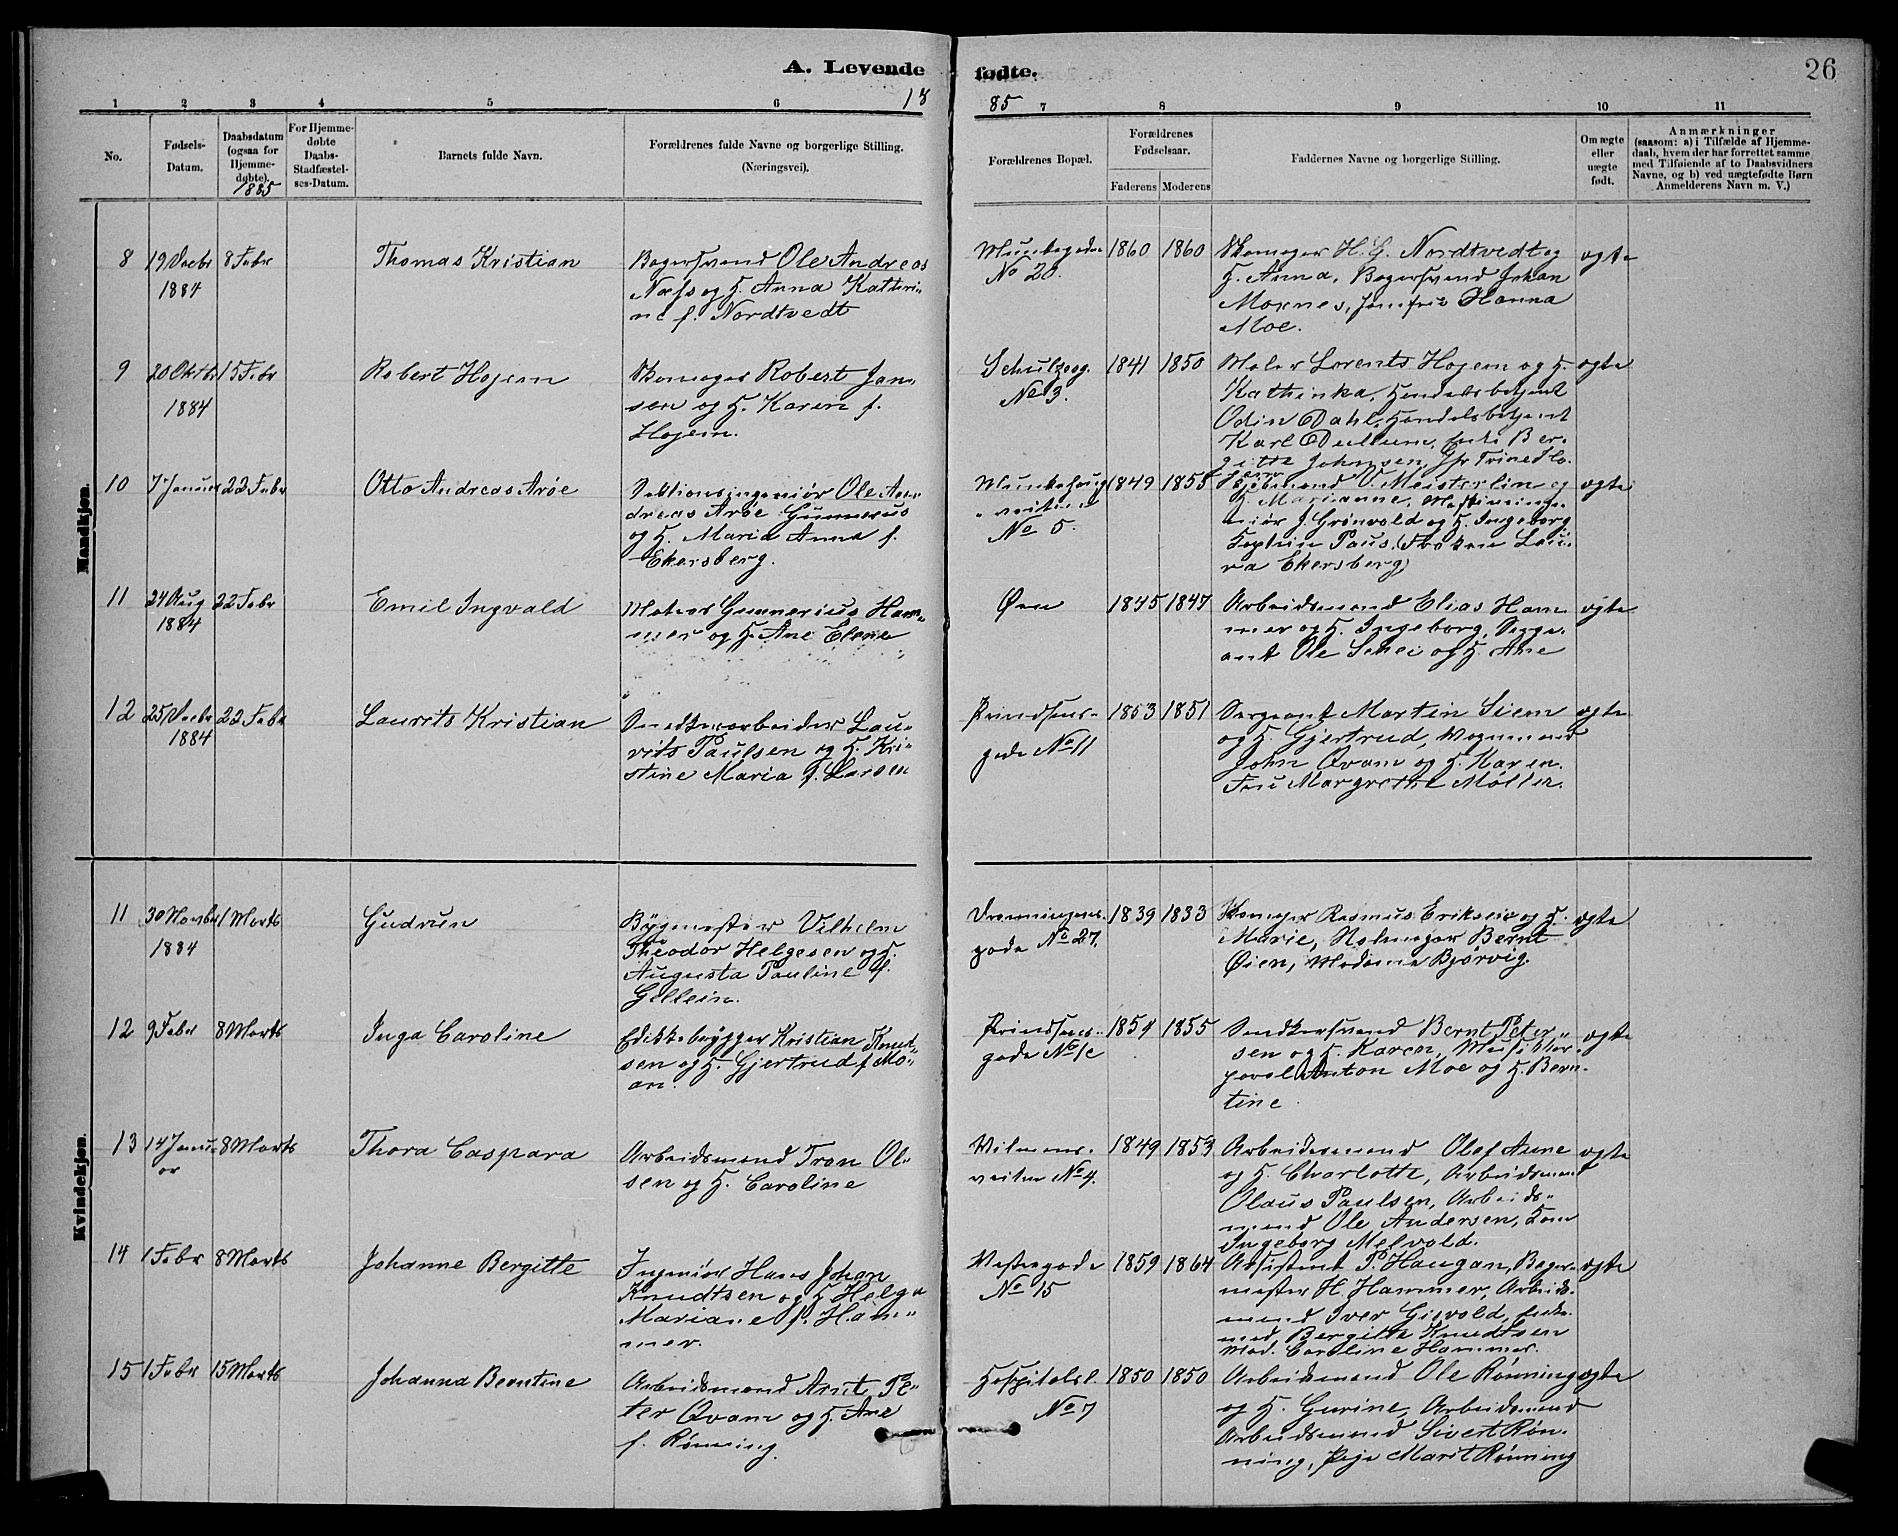 A. Levende fødte.
26
1885
1 2 3 4 5 6 7 8 9 10 11
No.
Fødsels-
Datum.
Daabsdatum
(ogsaa for
Hjemme-
døbte).
1885
For Hjemme-
døbte
Daabs-
Stadfæstel-
ses-Datum.
Barnets fulde Navn.
Forældrenes fulde Navne og borgerlige Stilling.
(Næringsvei).
Forældrenes Bopæl.
Forældrenes
Fødselsaar.
Faderens Moderens
Faddernes Navne og borgerlige Stilling.
Om ægte
eller
uægte
født.
Anmærkninger
(saasom: a) i Tilfælde af Hjemme-
daab, hvem der har forrettet samme
med Tilføiende af to Daabsvidners
Navne, og b) ved uægtefødte Børn
Anmelderens Navn m. V.)
Mandkjøn.
8
19 Decbr
1884
8 Febr
Thomas Kristian
Bagersvend Ole Andreas
Næss og H. Anna Kathri-
ne f. Nordtvedt
Munkegaden
No 20.
1860 1860
Skomager H. G. Nordtvedt og
H. Anna, Bagersvend Johan
Moxnes, Jomfru Hanna
Moe.
ægte
9
20 Oktbr
1884
15 Febr
Robert Hojem
Skomager Robert Jan-
sen og H. Karen f.
Hojem.
Schultzeg.
No 3.
1841 1850
Maler Lorents Hojem og H.
Kathinka, Handelsbetjent
Odin Dahl, Handelsbetjent
Karl Dullum, Enke Ber-
gitte Johnsen, Jfr Trine
ægte
10
7 Januar
22 Febr
Otto Andreas Arøe
Sektionsingeniør Ole An-
dreas Arøe Gunnerus
og H. Maria Anna f.
Ekersberg.
Munkehaug-
veiten
No 5.
1849 1855
V. Meisterlin og
H. Marianne, Maskininge-
niør J. Grønvold og H. Ingeborg
Kaptein Paus, Frøken Lau-
ra Ekersberg
ægte
11
24 Aug
1884
22 Febr
Emil Ingvald
Matros Gunnerius Ham-
mer og H. Ane Elene
Øen
1845 1847
Arbeidsmand Elias Ham-
mer og H. Ingeborg, Serge-
ant Ole Schei og H. Ane
ægte
12
25 Decbr
1884
22 Febr
Laurits Kristian
Snedkerarbeider Lau-
rits Paulsen og H. Kri-
stine Maria f. Larsen
Prindsens-
gade No 11
1853 1851
Sergeant Martin Siem
og H. Gjertrud, Vognmand
John Qvam og H. Karen.
Fru Margrethe Møller.
ægte
Kvindekjøn.
11
30 Novbr
1884
1 Marts
Gudrun
Bygmester Vilhelm
Theodor Helgesen og H.
Augusta Pauline f.
Gellein.
Dronningens-
gade No 27.
1839 1833
Skomager Rasmus Eriksen og H.
Marie, Salmager Bernt
Øien, Madame Bjørvig.
ægte
12
9 Febr
8 Marts
Inga Caroline
Eddikebrygger Kristian Knud-
sen og H. Gjertrud f. Mo-
an.
Prindsens-
gade No 1c
1854 1855
Snedkersvend Bernt Peter-
sen og H. Karen, Musikkor-
poral Anton Moe og H. Bern-
tine
ægte
13
14 Janu-
ar
8 Marts
Thora Caspara
Arbeidsmand Tron Ol-
sen og H. Caroline
veiten No 4.
1849 1853
Arbeidsmand Olaf Aune
og H. Charlotte, Arbeidsmand
Olaus Paulsen, Arbeids-
mand Ole Andersen, Kone
Ingeborg Melvold.
ægte
14
1 Febr
8 Marts
Johanne Bergitte
Ingeniør Hans Johan
Knudtsen og H. Helga
Mariane f. Ham-
mer.
Vestergade
No 15
1859 1864
Assistent P. Haugan, Bager-
mester H. Hammer, Arbeids-
mand Iver Gisvold, Enke-
mad. Bergitte Knudtsen
Mad. Caroline Hammer.
ægte
15
1 Febr
15 Marts
Johanna Berntine
Arbeidsmand Arnt Pe-
ter Qvam og H. Ane
f. Rønning.
Hospitalsl.
No 7
1850 1850
Arbeidsmand Ole Rønning
og H. Gurine, Arbeidsmand
Arbeidsmand Sivert Røn-
ning, Pige Marit Rønning
ægte